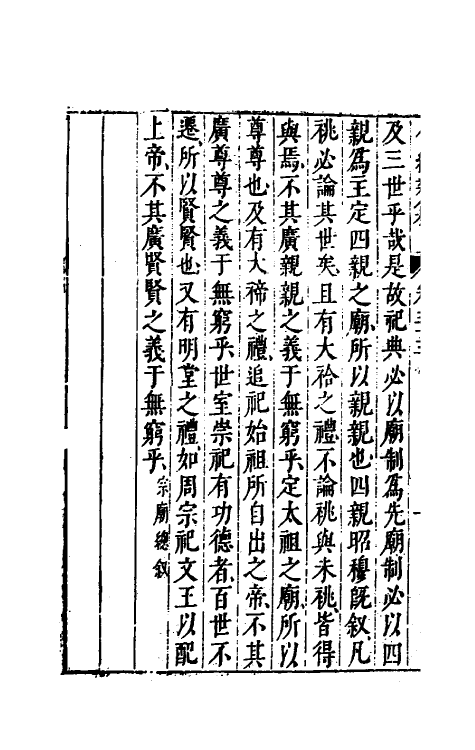 及三世乎哉是故祀典必以廟制爲先廟制必以四
親爲主定四親之廟所以親親也四親昭穆旣叙凡
祧必論其世矣且有大祫之禮不論祧與未祧皆得
與焉不其廣親親之義于無窮乎定太祖之廟所以
尊尊也及有大禘之禮追祀始祖所自出之帝不其
廣尊尊之義于無窮乎世室崇祀有功德者百世不
遷所以賢賢也又有明堂之禮如周宗祀文王以配
上帝不其廣賢賢之義于無窮乎宗廟總叙